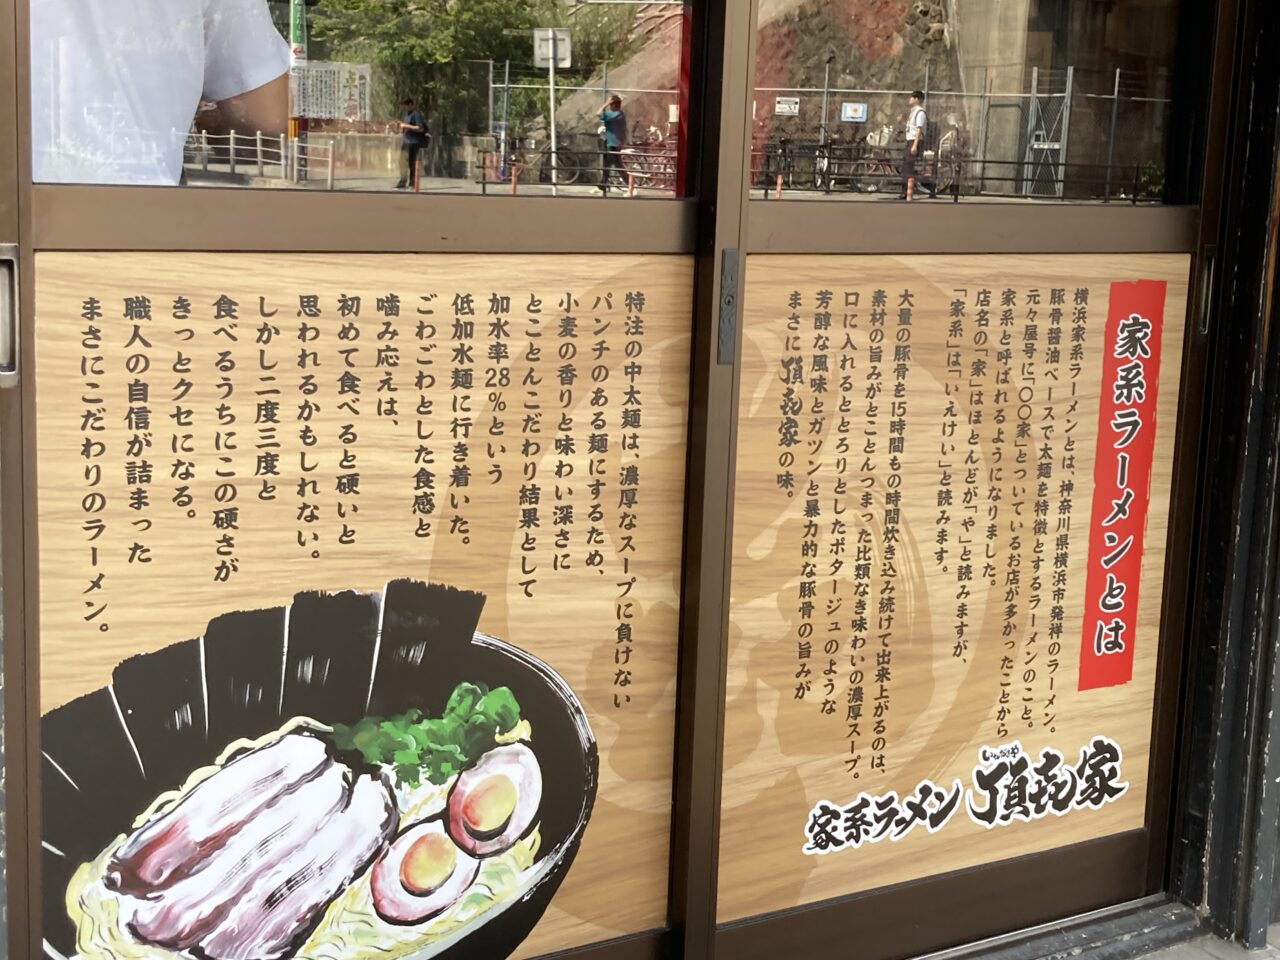 家系ラーメンとは
横浜家系ラーメンとは、神奈川県横浜市発祥のラーメン。
豚骨醤油ベースで太麺を特徴とするラーメンのこと。
元々屋号に「〇〇家」とついているお店が多かったことから
家系と呼ばれるようになりました。
店名の「家」はほとんどが「や」と読みますが、
「家系」は「いえけい」と読みます。
大量の豚骨を15時間もの時間炊き込み続けて出来上がるのは、
素材の旨みがとことんつまった比類なき味わいの濃厚スープ。
口に入れるととろりとしたポタージュのような
芳醇な風味とガツンと暴力的な豚骨の旨みが
まさに頂㐂家の味。
家系ラーメン 頂㐂家
特注の中太麺は、濃厚なスープに負けない
パンチのある麺にするため、
小麦の香りと味わい深さに
とことんこだわり結果として
加水率28%という
低加水麺に行き着いた。
ごわごわとした食感と
噛み応えは、
初めて食べると硬いと
思われるかもしれない。
しかし二度三度と
食べるうちにこの硬さが
きっとクセになる。
職人の自信が詰まった
まさにこだわりのラーメン。